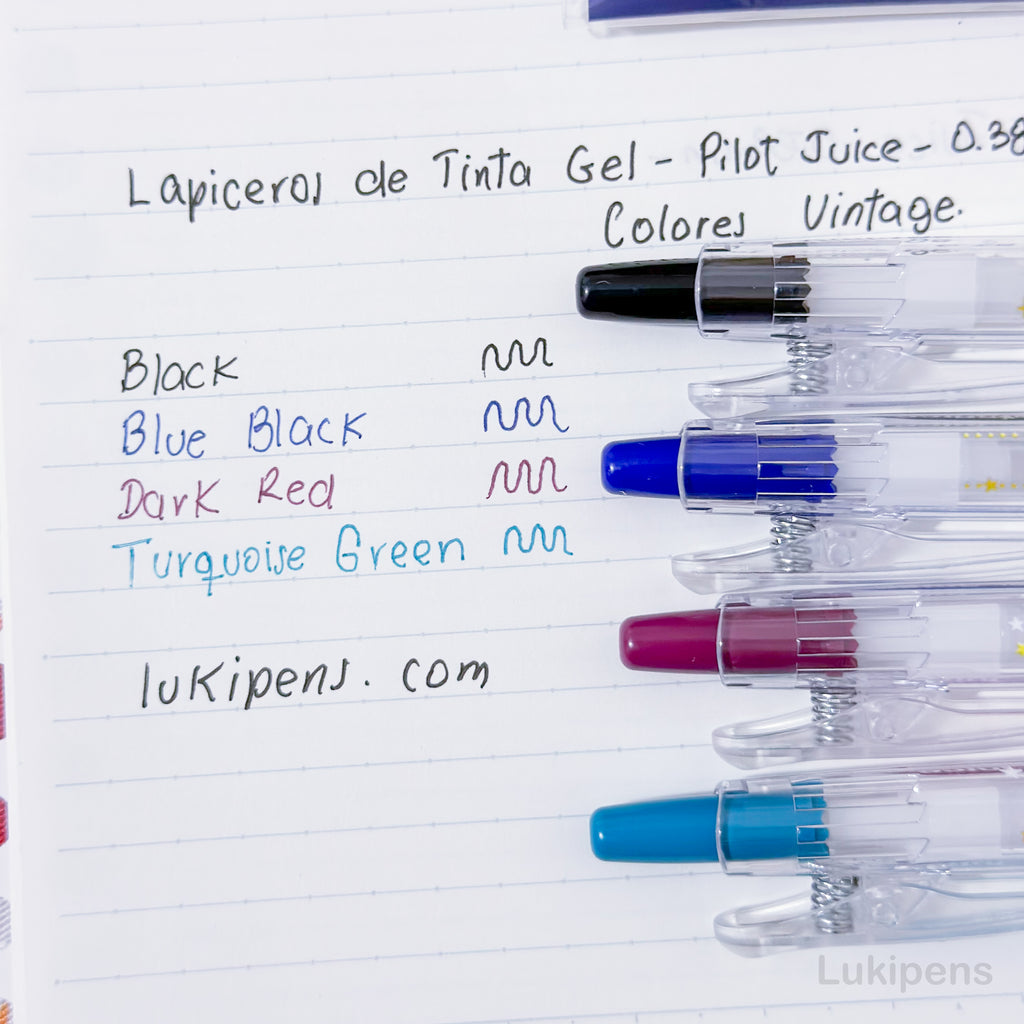 Lapiceros de Tinta Gel - Pilot Juice - 0.38
Colores Vintage.
Black
Blue Black
Dark Red
Turquoise Green
lukipens.com
Lukipens